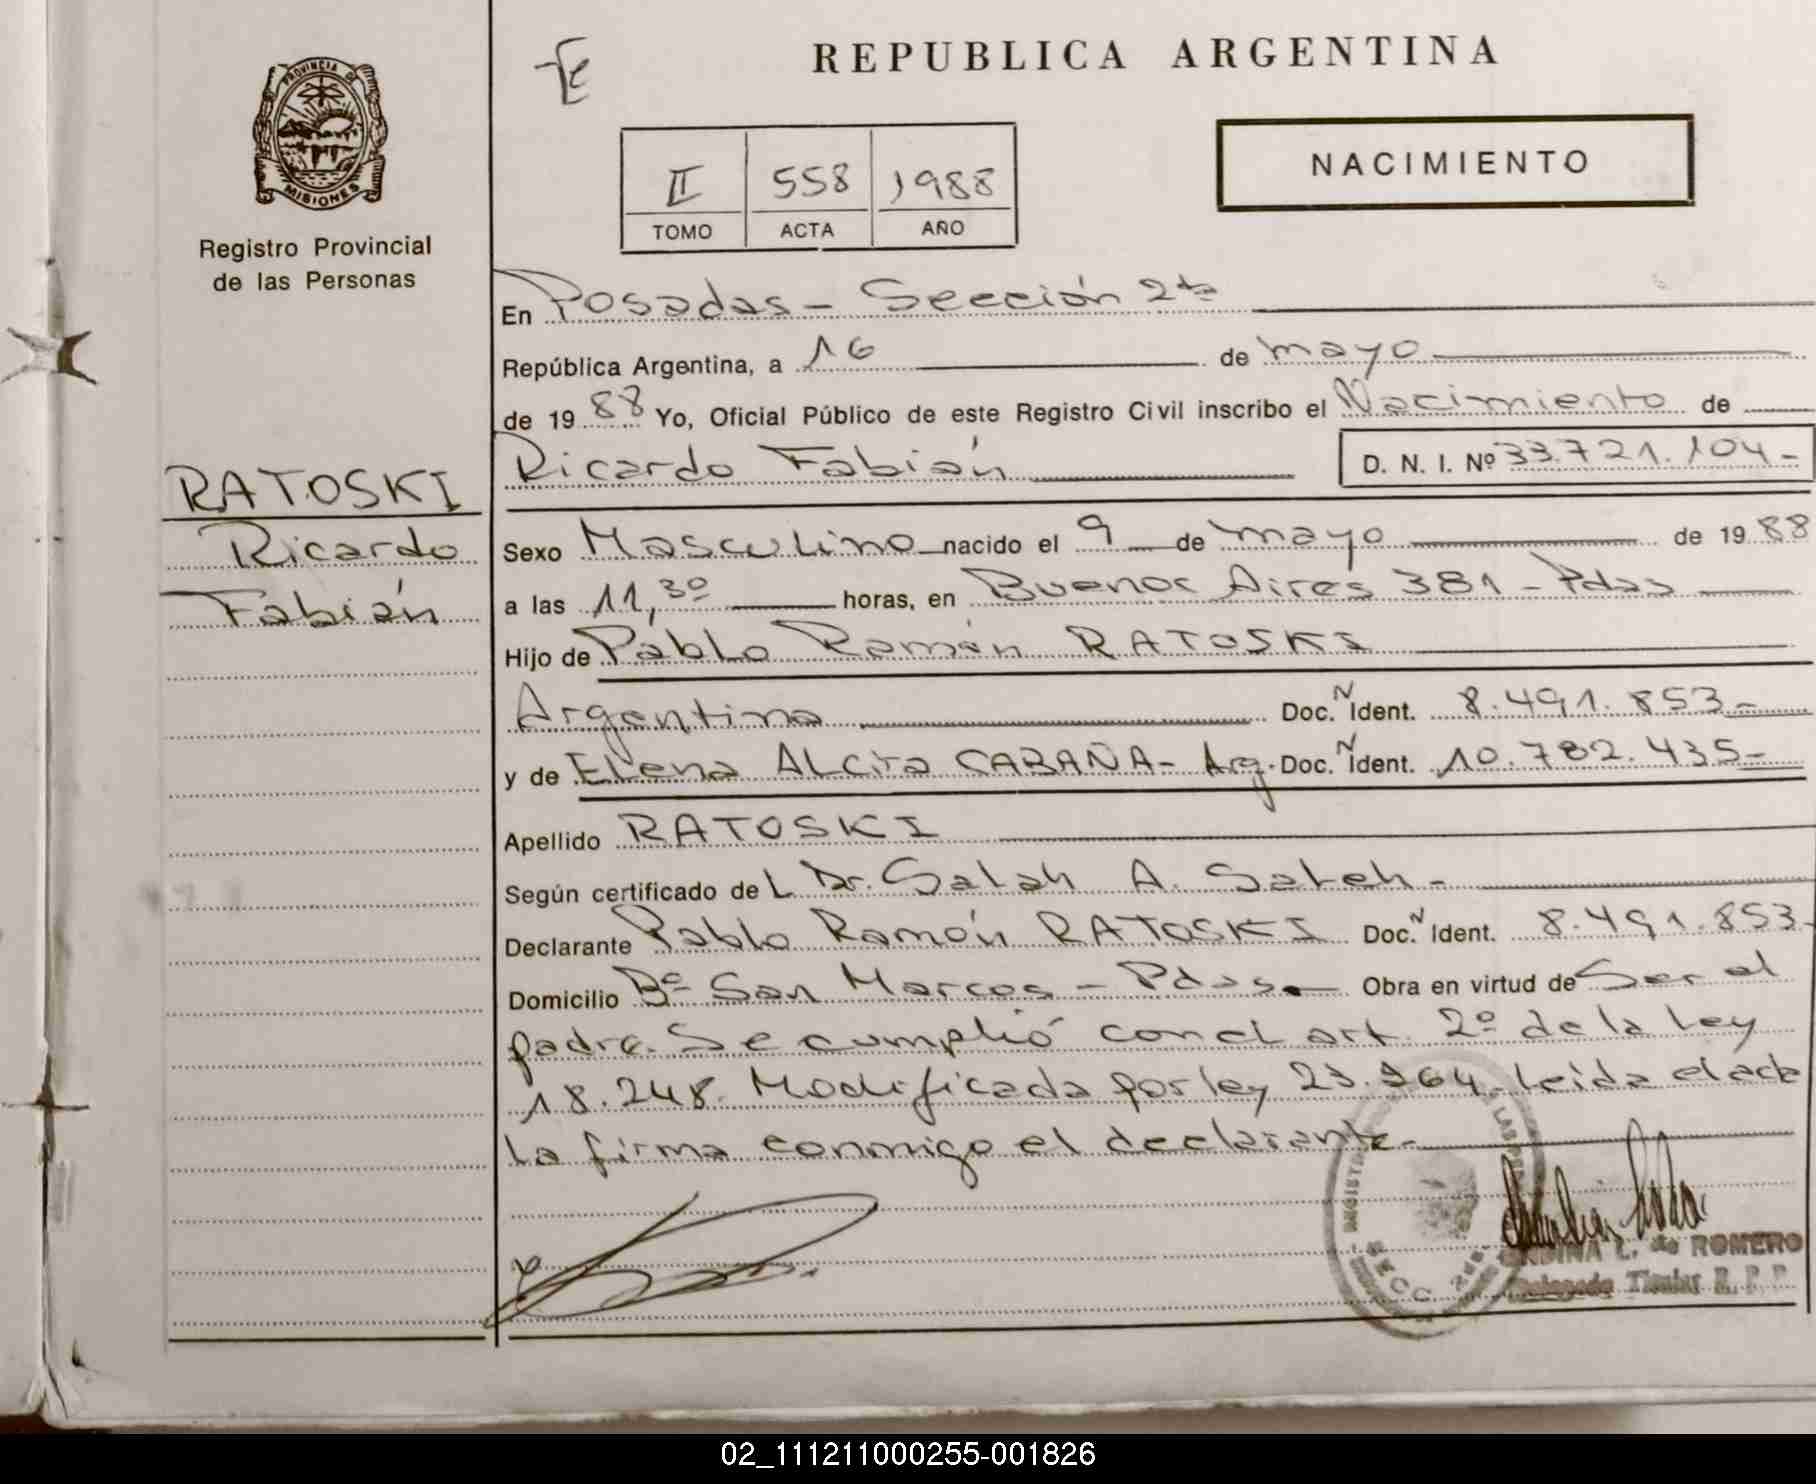 Fe
REPUBLICA ARGENTINA
PROVINCIA DE
MISIONES
Registro Provincial
de las Personas
II 558 1988
TOMO ACTA AÑO
NACIMIENTO
En Posadas - Sección 2da
República Argentina, a 16 de mayo
de 1988 Yo, Oficial Público de este Registro Civil inscribo el Nacimiento de
Ricardo Fabián D. N. I. Nº 33.721.104-
RATOSKI
Ricardo
Fabián
Sexo Masculino nacido el 9 de mayo de 1988
a las 11,30 horas, en Buenos Aires 381 - Pdas
Hijo de Pablo Ramón RATOSKI
Argentino Doc. N Ident. 8.491.853-
y de Elena ALcira CABAÑA - Arg. Doc. N Ident. 10.782.435-
Apellido RATOSKI
Según certificado del Dr. Salah A. Saleh -
Declarante Pablo Ramón RATOSKI Doc. N Ident. 8.491.853-
Domicilio Bº San Marcos - Pdas. Obra en virtud de Ser el
padre. Se cumplió con el art. 2º de la Ley
18.248. Modificada por ley 23.264. Leida el acta
la firma conmigo el declarante.-
SECC.
L. de ROMERO
Delegada Titular R. P. P.
02_111211000255-001826